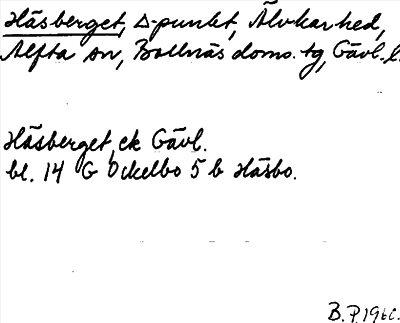 Häsberget, △punkt, Älvkarhed,
Alfta sn, Bollnäs doms. tg, Gävl. l.
Häsberget, ek Gävl.
bl. 14 G Ockelbo 5 b Häsbo.
B.P. 1960.